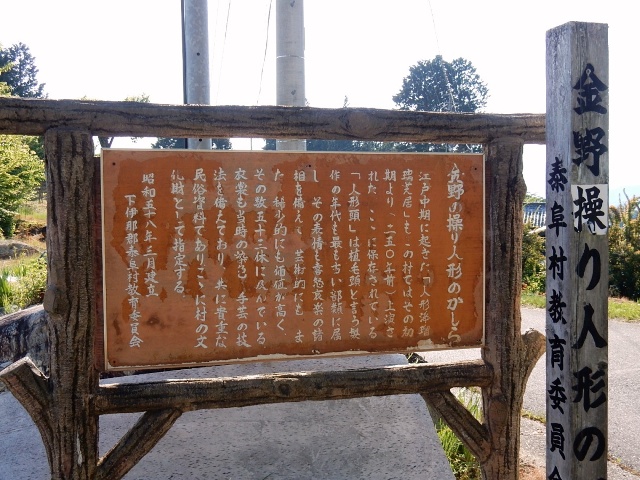 金野の操り人形のかしら
江戸中期に起きた「人形浄瑠
璃芝居」も、この村では其の初
期より、二五〇年前)上演さ
れた、ここに保存されている
「人形頭」は植毛頭と言う型
作の年代も最も古い部類に属
し、その表情も喜怒哀楽の諸
相を備え、芸術的にも、ま
た、稀少的にも価値が高く、
その数五十三体に及んでいる。
衣裳も当時の染色、手芸の技
法を備えており、共に貴重な
民俗資料でありここに村の文
化財として指定する。
昭和五十八年三月建立
下伊那郡泰阜村教育委員会
金野操り人形の
泰阜村教育委員会